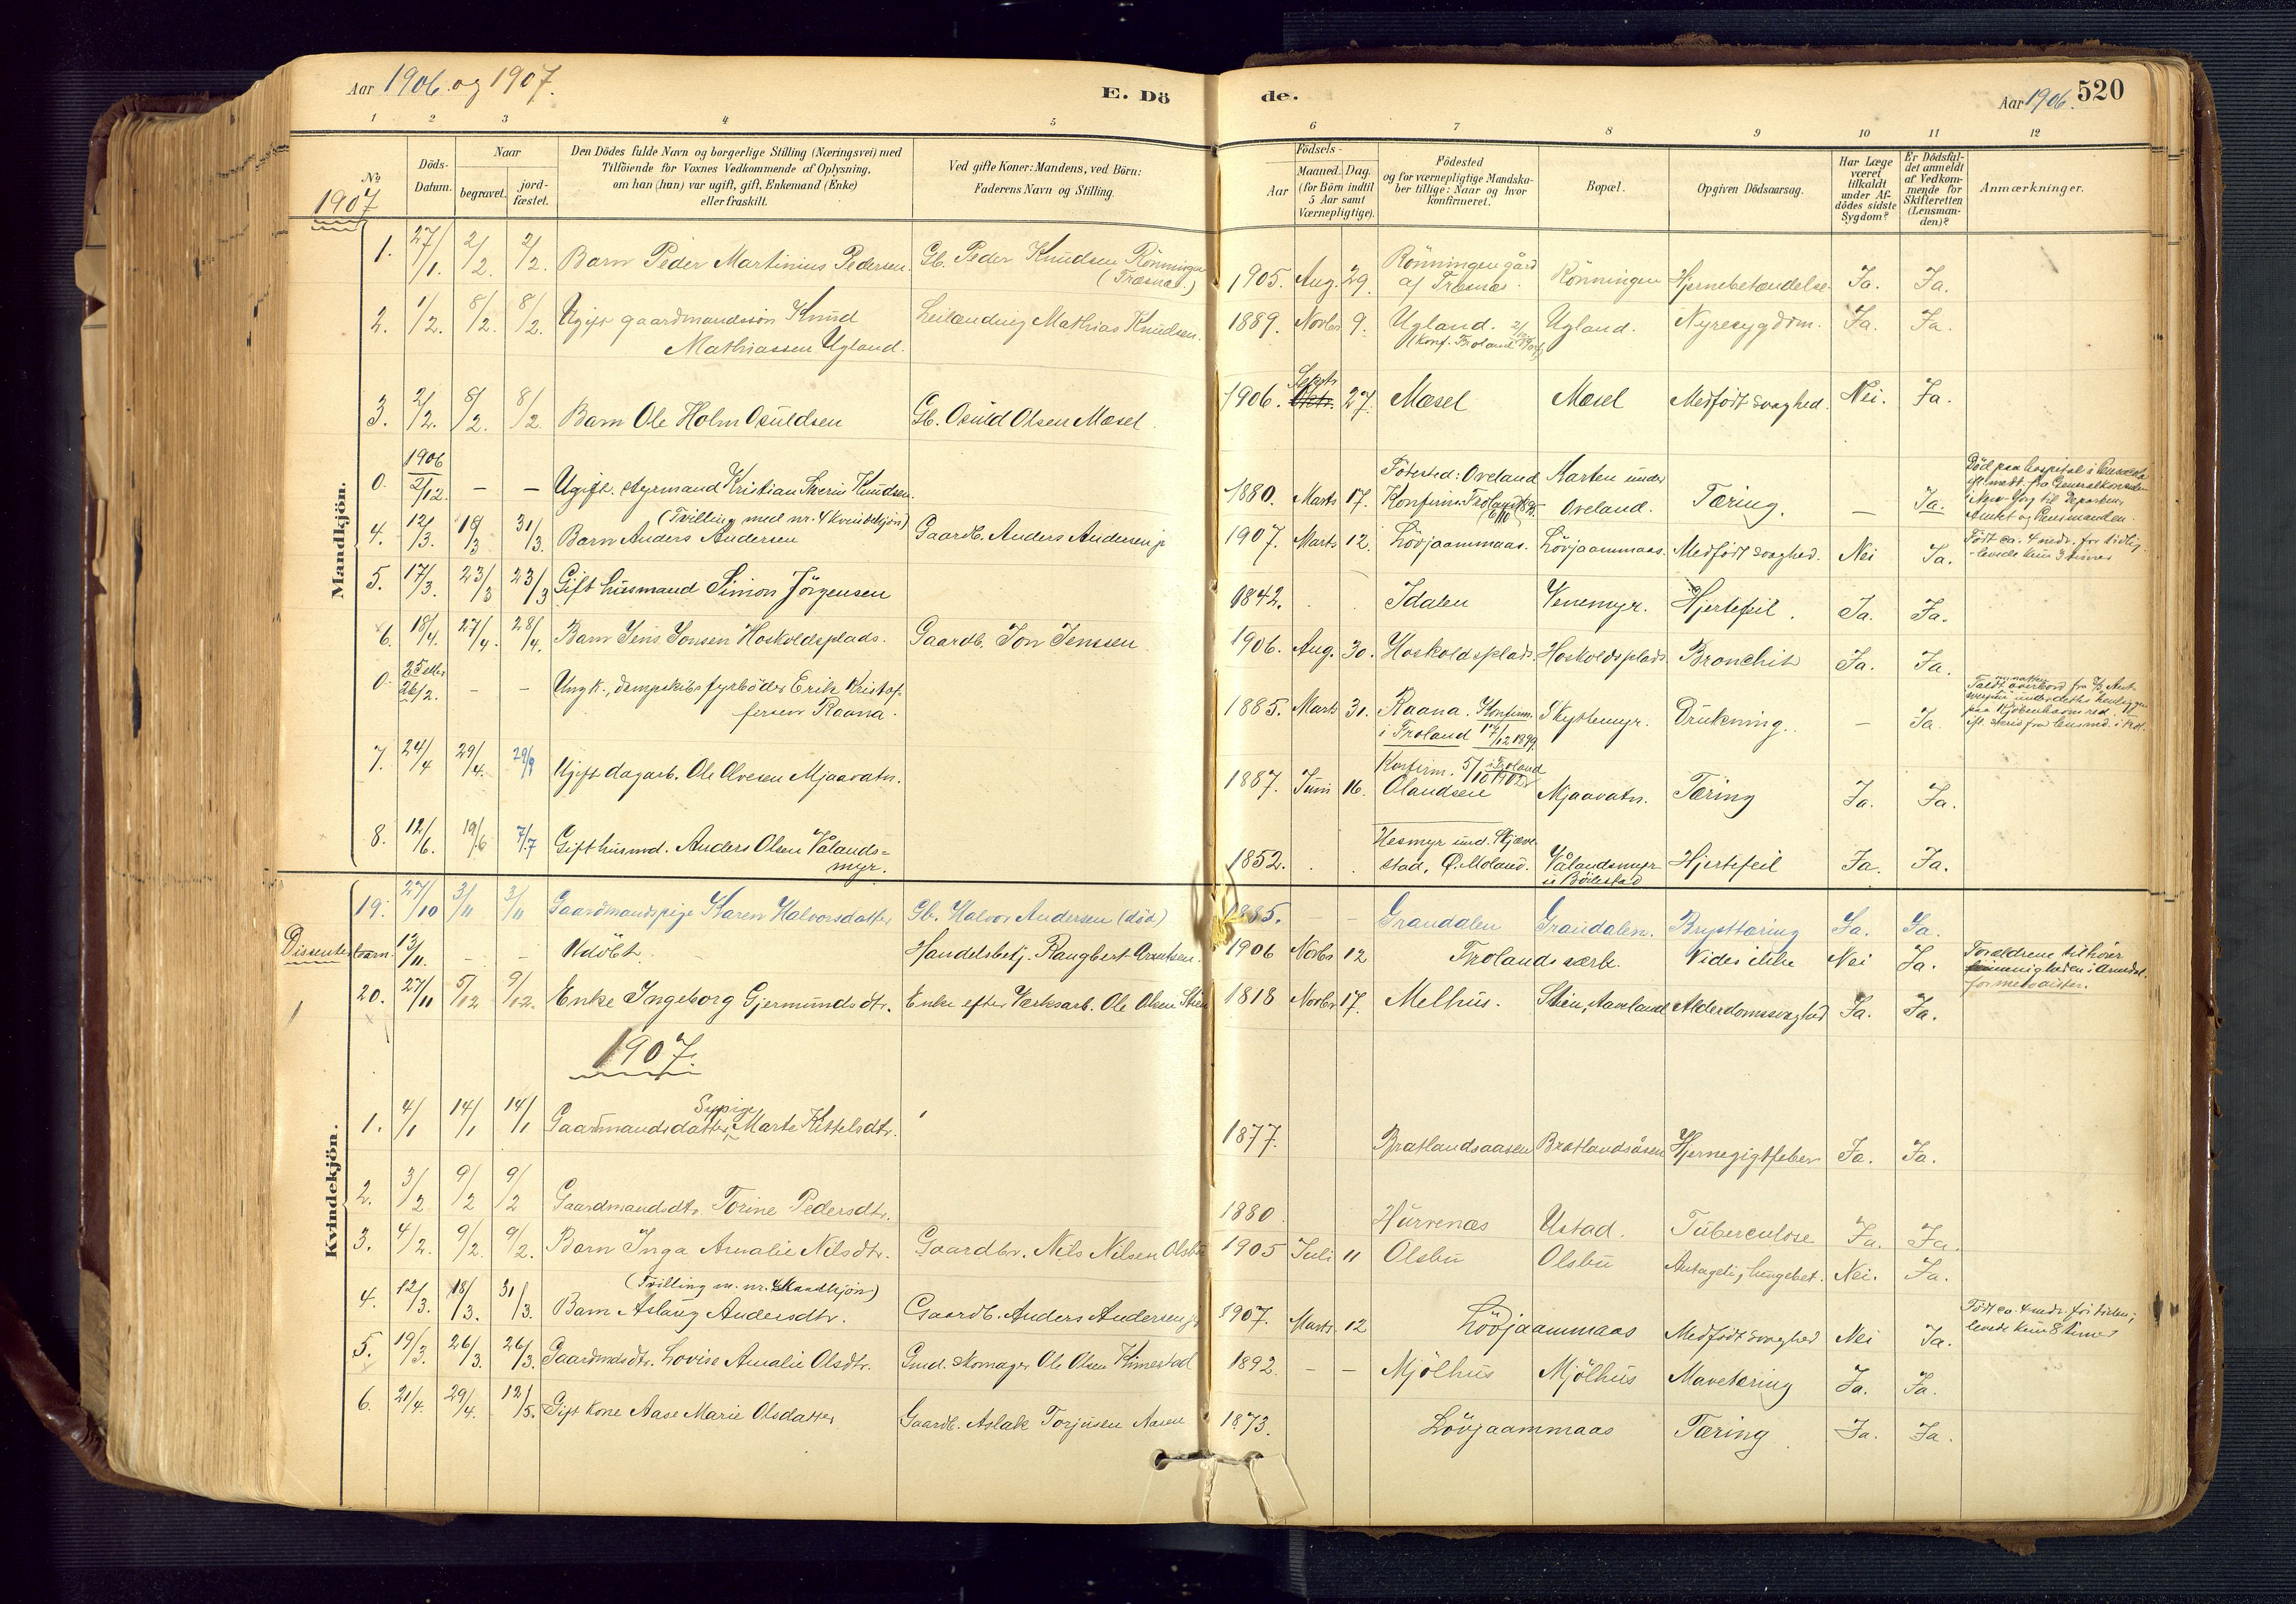 Aar 1906 og 1907. E. Dö de. Aar 1906. 520
1 2 3 4 5 6 7 8 9 10 11 12
No
Döds-Datum.
Naar
begravet.
jord-fæstet.
Den Dödes fulde Navn og borgerlige Stilling (Næringsvei) med
Tilföiende for Voxnes Vedkommende af Oplysning,
om han (hun) var ugift, gift, Enkemand (Enke)
eller fraskilt.
Ved gifte Koner: Mandens, ved Börn:
Faderens Navn og Stilling.
Födsels-
Aar
Maaned. Dag.
(for Börn indtil
5 Aar samt
Værnepligtige).
Födested
og for værnepligtige Mandska-
ber tillige: Naar og hvor
konfirmeret.
Bopæl.
Opgiven Dödsaarsag.
Har Læge
været
tilkaldt
under Af-
dödes sidste
Sygdom?
Er Dödsfal-
det anmeldt
af Vedkom-
mende for
Skifteretten
(Lensman-
den)?
Anmærkninger.
1907
Mandkjön.
1. 27/1. 2/2. 2/2. Barn Peder Martinius Pedersen. Gb. Peder Knudsen Rönningen (Træsnæs.) 1905. Aug. 29. Rönningen gård af Træsnæs. Rönningen Hjernebetændelse. Ja. Ja.
2. 1/2. 8/2. 8/2. Ugift gaardmandssön Knud Leilænding Mathias Knudsen. 1889. Novbr 9. Ugland. Ugland. Nyresygdom. Ja. Ja.
Mathiassen Ugland. (Konf. Froland
3. 2/2. 8/2. 8/2. Barn Ole Holm Osuldsen Gb. Osuld Olsen Mæsel. 1906. Septr 27. Mæsel Mæsel Medfödt svaghed. Nei. Ja.
0. 1906 2/12. – – Ugift. styrmand Kristian Severin Knudsen. 1880. Marts 17. Födested: Oveland Konfirm. Froland Aarten under Oveland. Tæring. – Ja. Död paa hospital i Pensacola
New-York til Departem.
Amtet og Lensmanden.
4. 12/3. 18/3 31/3. (Tvilling med nr. 4 kvindekjön) Barn Anders Andersen Gaardb. Anders Andersen jr 1907. Marts 12. Lövjaammaas. Lövjaammaas. Medfödt svaghed. Nei Ja. Födt ca. 4 mdr. for tidlig.
-levede kun 3 timer
5. 17/3. 23/3 23/3 Gift husmand Simon Jörgensen 1842. Idalen Venemyr. Hjertefeil. Ja. Ja.
6. 18/4. 27/4. 28/4. Barn Jens Jonsen Hoskoldsplads. Gaardb. Jon Jenssen. 1906. Aug. 30. Hoskoldsplads. Hoskoldsplads. Bronchit Ja. Ja.
0. 25 eller 26/2. – – Ungk., dampskibs fyrböder Erik Kristof-
fersen Raana. 1885. Marts 31. Raana. Konfirm. i Froland 17/12 1899. Skyttemyr. Drukning. – Ja
paa Kjöbenhavns red.
7. 24/4 29/4. 29/4 Ugift dagarb. Ole Olvesen Mjaavatn. 1887. Juni 16. Konfirm. 5/10 1902 i Froland Olandsen Mjaavatn. Tæring Ja. Ja.
8. 12/6. 19/6 7/7 Gift husmd. Anders Olsen Vålands-
myr. 1852. Hesmyr und. Skjæve-
stad, Ø. Moland. Vålandsmyr u Böilestad Hjertefeil Ja. Ja.
Kvindekjön.
19. 27/10 3/11 3/11 Gaardmandspige Karen Halvorsdatter Gb. Halvor Andersen (död) 1885. – – Grandalen Grandalen. Brysttæring Ja. Ja.
Dissenterbarn. 13/11. – – Udöbt. Handelsbetj. Rangbert Arentsen. 1906 Novbr 12 Frolands værk. Vides ikke Nei Ja. Forældrene tilhörer
menigheden i Arendal.
for metodister.
20. 27/11 5/12 9/12. Enke Ingeborg Gjermundsdtr. Enke efter Værksarb. Ole Olsen Stien 1818 Novbr 17. Melhus. Stien, Aamland Alderdomssvaghed Ja. Ja.
1907.
1. 4/1 14/1 14/1 Gaardmandsdatter, Sypige Marte Kittelsdtr. 1877. Bratlandsaasen Bratlandsåsen Hjernegigtfeber Ja. Ja.
2. 3/2 9/2 9/2 Gaardmandsdtr. Torine Pedersdtr. 1880 Hurvenæs Ustad. Tuberculose Ja. Ja.
3. 4/2. 9/2. 9/2. Barn Inga Amalie Nilsdtr. Gaardbr. Nils Nilsen Olsbu 1905 Juli 11 Olsbu Olsbu Antagelig lungebet. Nei. Ja.
4. 12/3. 18/3. 31/3. (Tvilling m. nr. 4 Mandkjön) Barn Aslaug Andersdtr. Gaardb. Anders Andersen jr 1907. Marts 12 Lövjaammaas Medfödt svaghed Nei Ja. Födt ca. 4 mdr. för tiden;
levede kun 8 timer
5. 19/3. 26/3. 26/3. Gaardmdsdtr. Lovise Amalie Olsdtr. Gmd. skomager Ole Olsen Rimestad 1892. – – Mjölhus Mjölhus Mavetæring Ja. Ja.
6. 21/4. 29/4. 12/5. Gift kone Aase Marie Olsdatter Gaardb. Aslak Torjusen Aasen 1873. Lövjaammaas Tæring Ja. Ja.